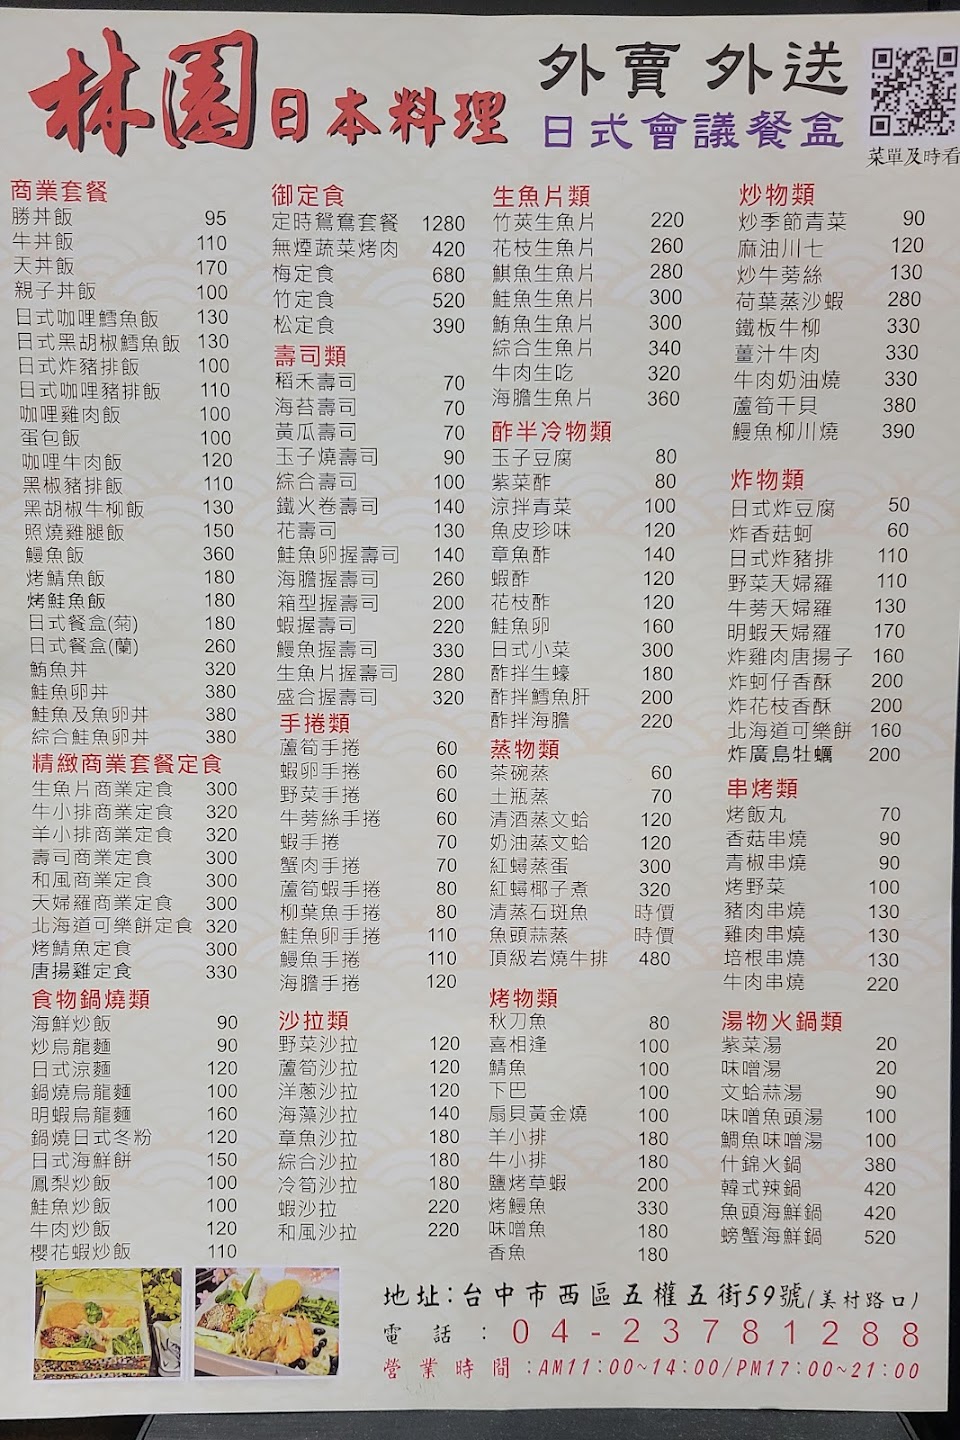 林園日本料理
外賣 外送
日式會議餐盒
菜單及時看
商業套餐
勝丼飯 95
牛丼飯 110
天丼飯 170
親子丼飯 100
日式咖哩鱈魚飯 130
日式黑胡椒鱈魚飯 130
日式炸豬排飯 100
日式咖哩豬排飯 110
咖哩雞肉飯 100
蛋包飯 100
咖哩牛肉飯 120
黑椒豬排飯 110
黑胡椒牛柳飯 130
照燒雞腿飯 150
鰻魚飯 360
烤鯖魚飯 180
烤鮭魚飯 180
日式餐盒(菊) 180
日式餐盒(蘭) 260
鮪魚丼 320
鮭魚卵丼 380
鮭魚及魚卵丼 380
綜合鮭魚卵丼 380
精緻商業套餐定食
生魚片商業定食 300
牛小排商業定食 320
羊小排商業定食 320
壽司商業定食 300
和風商業定食 300
天婦羅商業定食 300
北海道可樂餅定食 320
烤鯖魚定食 300
唐揚雞定食 330
食物鍋燒類
海鮮炒飯 90
炒烏龍麵 90
日式涼麵 120
鍋燒烏龍麵 100
明蝦烏龍麵 160
鍋燒日式冬粉 120
日式海鮮餅 150
鳳梨炒飯 100
鮭魚炒飯 100
牛肉炒飯 120
櫻花蝦炒飯 110
御定食
定時鴛鴦套餐 1280
無煙蔬菜烤肉 420
梅定食 680
竹定食 520
松定食 390
壽司類
稻禾壽司 70
海苔壽司 70
黃瓜壽司 70
玉子燒壽司 90
綜合壽司 100
鐵火卷壽司 140
花壽司 130
鮭魚卵握壽司 140
海膽握壽司 260
箱型握壽司 200
蝦握壽司 220
鰻魚握壽司 330
生魚片握壽司 280
盛合握壽司 320
手捲類
蘆筍手捲 60
蝦卵手捲 60
野菜手捲 60
牛蒡絲手捲 60
蝦手捲 70
蟹肉手捲 70
蘆筍蝦手捲 80
柳葉魚手捲 80
鮭魚卵手捲 110
鰻魚手捲 110
海膽手捲 120
沙拉類
野菜沙拉 120
蘆筍沙拉 120
洋蔥沙拉 120
海藻沙拉 140
章魚沙拉 180
綜合沙拉 180
冷筍沙拉 180
蝦沙拉 220
和風沙拉 220
生魚片類
竹莢生魚片 220
花枝生魚片 260
鯕魚生魚片 280
鮭魚生魚片 300
鮪魚生魚片 300
綜合生魚片 340
牛肉生吃 320
海膽生魚片 360
酢半冷物類
玉子豆腐 80
紫菜酢 80
涼拌青菜 100
魚皮珍味 120
章魚酢 140
蝦酢 120
花枝酢 120
鮭魚卵 160
日式小菜 300
酢拌生蠔 180
酢拌鱈魚肝 200
酢拌海膽 220
蒸物類
茶碗蒸 60
土瓶蒸 70
清酒蒸文蛤 120
奶油蒸文蛤 120
紅蟳蒸蛋 300
紅蟳椰子煮 320
清蒸石斑魚 時價
魚頭蒜蒸 時價
頂級岩燒牛排 480
烤物類
秋刀魚 80
喜相逢 100
鯖魚 100
下巴 100
扇貝黃金燒 100
羊小排 180
牛小排 180
鹽烤草蝦 200
烤鰻魚 330
味噌魚 180
香魚 180
炒物類
炒季節青菜 90
麻油川七 120
炒牛蒡絲 130
荷葉蒸沙蝦 280
鐵板牛柳 330
薑汁牛肉 330
牛肉奶油燒 330
蘆筍干貝 380
鰻魚柳川燒 390
炸物類
日式炸豆腐 50
炸香菇蚵 60
日式炸豬排 110
野菜天婦羅 110
牛蒡天婦羅 130
明蝦天婦羅 170
炸雞肉唐揚子 160
炸蚵仔香酥 200
炸花枝香酥 200
北海道可樂餅 160
炸廣島牡蠣 200
串烤類
烤飯丸 70
香菇串燒 90
青椒串燒 90
烤野菜 100
豬肉串燒 130
雞肉串燒 130
培根串燒 130
牛肉串燒 220
湯物火鍋類
紫菜湯 20
味噌湯 20
文蛤蒜湯 90
味噌魚頭湯 100
鯛魚味噌湯 100
什錦火鍋 380
韓式辣鍋 420
魚頭海鮮鍋 420
螃蟹海鮮鍋 520
地址:台中市西區五權五街59號(美村路口)
電話:04-23781288
營業時間:AM11:00~14:00/PM17:00~21:00